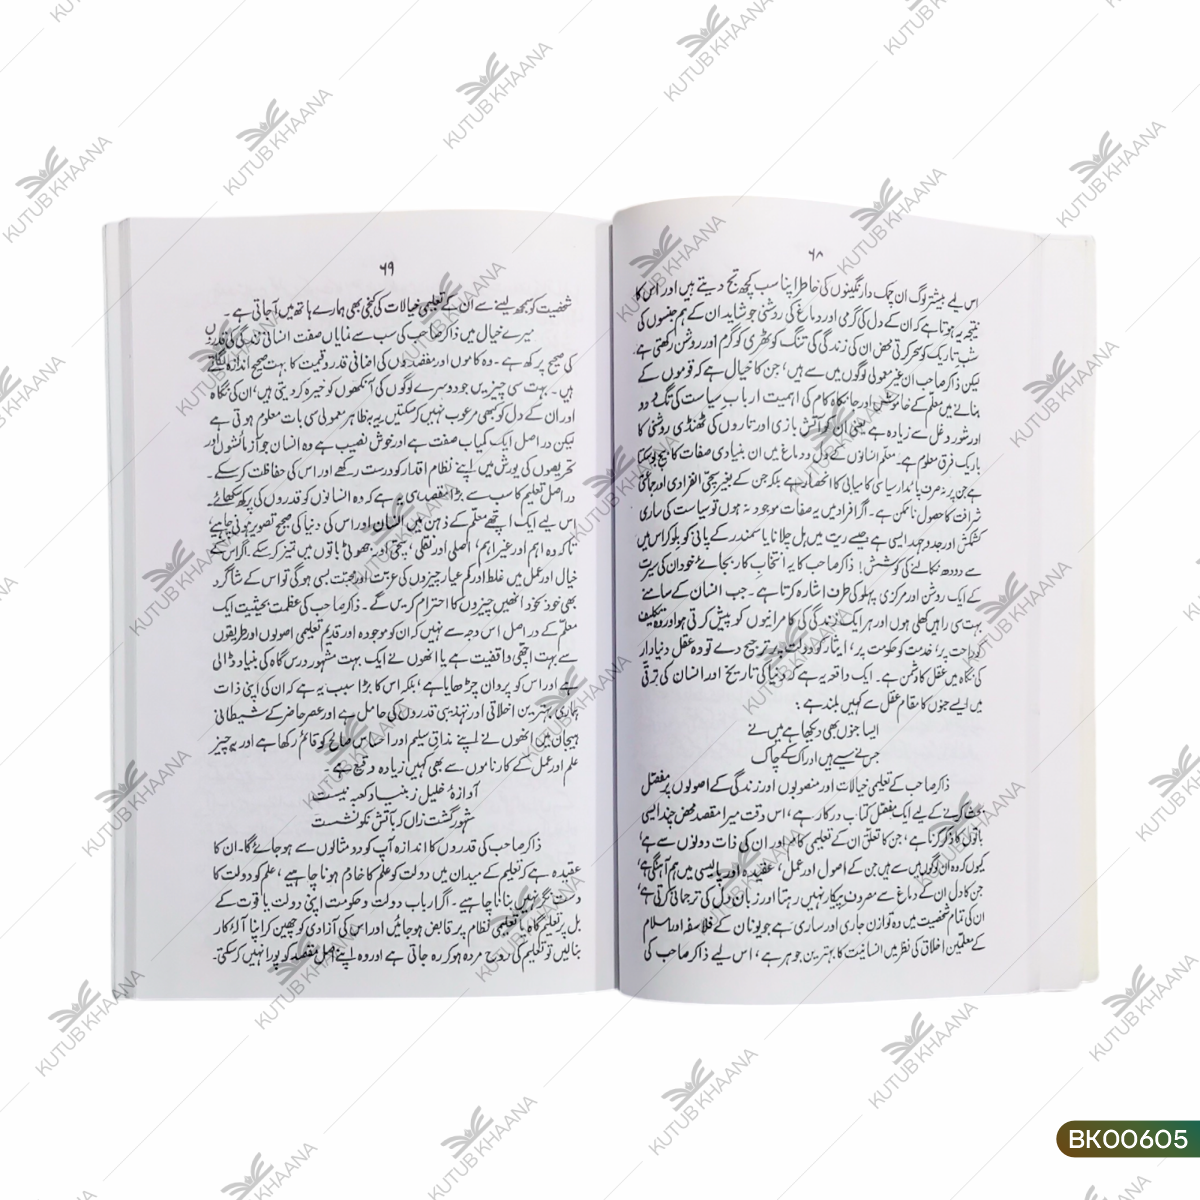 ۶۸
اس لیے بیشتر لوگ ان چمک دار نگینوں کی خاطر اپنا سب کچھ تج دیتے ہیں اور اس کا
نتیجہ یہ ہوتا ہے کہ ان کے دل کی گرمی اور دماغ کی روشنی جو شاید ان کے ہم جنسوں کی
شب تاریک کو سحر کرتی محض ان کی زندگی کی تنگ کوٹھری کو گرم اور روشن رکھتی ہے۔
لیکن ذاکر صاحب ان غیر معمولی لوگوں میں سے ہیں، جن کا خیال ہے کہ قوموں کے
بنانے میں معلّم کے خاموش اور جانکاہ کام کی اہمیت اربابِ سیاست کی تگ و دو
اور شور و غل سے زیادہ ہے یعنی ان کو آتش بازی اور تاروں کی ٹھنڈی روشنی کا
باریک فرق معلوم ہے۔ معلّم انسانوں کے دل و دماغ میں ان بنیادی صفات کا بیج بو سکتا
ہے جن پر نہ صرف پائدار سیاسی کامیابی کا انحصار ہے بلکہ جن کے بغیر سچی انفرادی اور جماعتی
شرافت کا حصول ناممکن ہے۔ اگر افراد میں یہ صفات موجود نہ ہوں تو سیاست کی ساری
کشمکش اور جدوجہد ایسی ہے جیسے ریت میں ہل چلانا یا سمندر کے پانی کو بلو کر اس میں
سے دودھ نکالنے کی کوشش! ذاکر صاحب کا یہ انتخابِ کار بجائے خود ان کی سیرت
کے ایک روشن اور مرکزی پہلو کی طرف اشارہ کرتا ہے۔ جب انسان کے سامنے
بہت سی راہیں کھلی ہوں اور ہر ایک زندگی کی کامرانیوں کو پیش کرتی ہو اور وہ تکلیف
کو راحت پر، خدمت کو حکومت پر، ایثار کو دولت پر ترجیح دے تو وہ عقل دنیادار
کی نگاہ میں عقل کا دشمن ہے۔ ایک واقعہ یہ ہے کہ دنیا کی تاریخ اور انسان کی ترقی
میں ایسے جنوں کا مقام عقل سے کہیں بلند ہے:
ایسا جنوں بھی دیکھا ہے میں نے
جس نے سیے ہیں ادراک کے چاک
ذاکر صاحب کے تعلیمی خیالات اور منصوبوں اور زندگی کے اصولوں پر مفصّل
بحث کرنے کے لیے ایک مفصل کتاب درکار ہے، اس وقت میرا مقصد محض چند ایسی
باتوں کا ذکر کرنا ہے، جن کا تعلق ان کے تعلیمی کام اور ان کی ذات دونوں سے ہے،
کیوں کہ وہ ان لوگوں میں سے ہیں جن کے اصول اور عمل، عقیدہ اور پالیسی میں ہم آہنگی ہے،
جن کا دل ان کے دماغ سے مصروفِ پیکار نہیں رہتا اور زبان دل کی ترجمانی کرتی ہے،
ان کی تمام شخصیت میں وہ توازن جاری اور ساری ہے جو یونان کے فلاسفہ اور اسلام
کے معلّمین اخلاق کی نظر میں انسانیت کا بہترین جوہر ہے، اس لیے ذاکر صاحب کی
۶۹
شخصیت کو سمجھ لینے سے ان کے تعلیمی خیالات کی کنجی بھی ہمارے ہاتھ میں آجاتی ہے۔
میرے خیال میں ذاکر صاحب کی سب سے نمایاں صفت انسانی زندگی کی قدروں
کی صحیح پرکھ ہے۔ وہ کاموں اور مقصدوں کی اضافی قدر و قیمت کا بہت صحیح اندازہ لگاتے
ہیں۔ بہت سی چیزیں جو دوسرے لوگوں کی آنکھوں کو خیرہ کر دیتی ہیں، ان کی نگاہ
اور ان کے دل کو بھی مرعوب نہیں کر سکتیں یہ بظاہر معمولی سی بات معلوم ہوتی ہے
لیکن دراصل ایک کمیاب صفت ہے اور خوش نصیب ہے وہ انسان جو آزمائشوں اور
تحریصوں کی یورش میں اپنے نظام اقدار کو درست رکھے اور اس کی حفاظت کر سکے۔
دراصل تعلیم کا سب سے بڑا مقصد ہی یہ ہے کہ وہ انسانوں کو قدروں کی پرکھ سکھائے۔
اس لیے ایک اچھے معلّم کے ذہن میں انسان اور اس کی دنیا کی صحیح تصویر ہونی چاہیے،
تاکہ وہ اہم اور غیر اہم، اصلی اور نقلی، سچی اور جھوٹی باتوں میں تمیز کر سکے۔ اگر اس کے
خیال اور عمل میں غلط اور کم عیار چیزوں کی عزت اور محبت بسی ہوگی تو اس کے شاگرد
بھی خود بخود انھیں چیزوں کا احترام کریں گے۔ ذاکر صاحب کی عظمت بحیثیت ایک
معلّم کے دراصل اس وجہ سے نہیں کہ ان کو موجودہ اور قدیم تعلیمی اصولوں اور طریقوں
سے بہت اچھی واقفیت ہے یا انھوں نے ایک بہت مشہور درس گاہ کی بنیاد ڈالی
ہے اور اس کو پروان چڑھایا ہے، بلکہ اس کا بڑا سبب یہ ہے کہ ان کی اپنی ذات
ہماری بہترین اخلاقی اور تہذیبی قدروں کی حامل ہے اور عصر حاضر کے شیطانی
ہیجان میں انھوں نے اپنے مذاق سلیم اور احساس صالح کو قائم رکھا ہے اور یہ چیز
علم اور عمل کے کارناموں سے بھی کہیں زیادہ وقیع ہے۔
آوازۂ خلیل ز بنیاد کعبہ نیست
مشہور گشت زاں کہ بآتش نکو نشست
ذاکر صاحب کی قدروں کا اندازہ آپ کو دو مثالوں سے ہو جائے گا۔ ان کا
عقیدہ ہے کہ تعلیم کے میدان میں دولت کو علم کا خادم ہونا چاہیے، علم کو دولت کا
دست نگر نہیں بنانا چاہیے۔ اگر ارباب دولت و حکومت اپنی دولت یا قوت کے
بل پر تعلیم گاہ یا تعلیمی نظام پر قابض ہو جائیں اور اس کی آزادی کو چھین کر اپنا آلۂ کار
بنالیں تو تعلیم کی روح مردہ ہو کر رہ جاتی ہے اور وہ اپنے اصل مقصد کو پورا نہیں کر سکتی۔
KUTUB KHAANA
BK00605